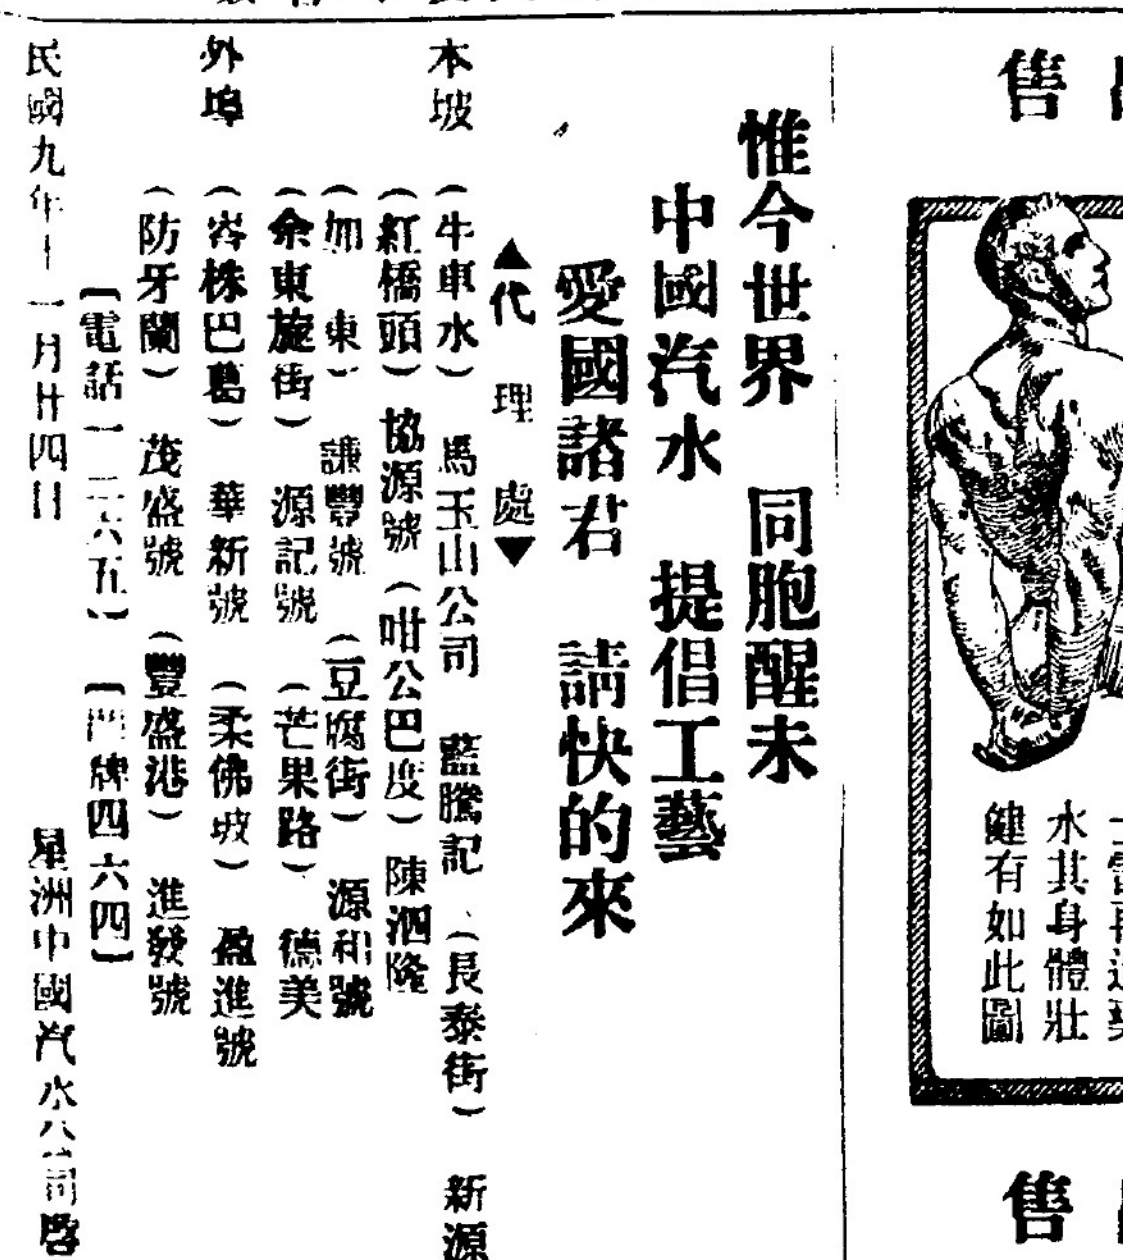 售
水其身體壯
健有如此圖
售
惟今世界 同胞醒未
中國汽水 提倡工藝
愛國諸君 請快的來
▲代理處▼
本坡 (牛車水) 馬玉山公司 藍騰記 (長泰街) 新源
(紅橋頭) 協源號 (咁公巴度) 陳泗隆
(加東) 謙豐號 (豆腐街) 源和號
(余東旋街) 源記號 (芒果路) 德美
外埠 (峇株巴葛) 華新號 (柔佛坡) 盈進號
(防牙蘭) 茂盛號 (豐盛港) 進發號
[電話一二六五] [門牌四六四]
民國九年十一月廿四日 星洲中國汽水公司啓